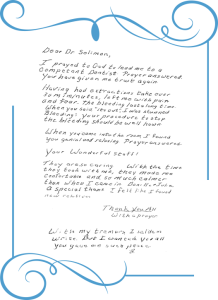 Dear Dr Soliman,
I prayed to God to lead me to a
Competent Dentist Prayer answered
You have given me trust again
Having had extractions take over
20 minutes, left me with pain
and fear. The bleeding lasted long time
When you said "I'm out", I was
Bleeding! your procedure to stop
the bleeding should be well known
When you came into the room I found
you genial and relaxing Prayer answered
Your Wonderful staff!
They are caring With the time
they took with me, they made me
comfortable and so much calmer
than when I came in
A special thanks I felt like I found
new
Thank
With a prayer
With my tremors I seldom
write But I wanted you all
you gave me